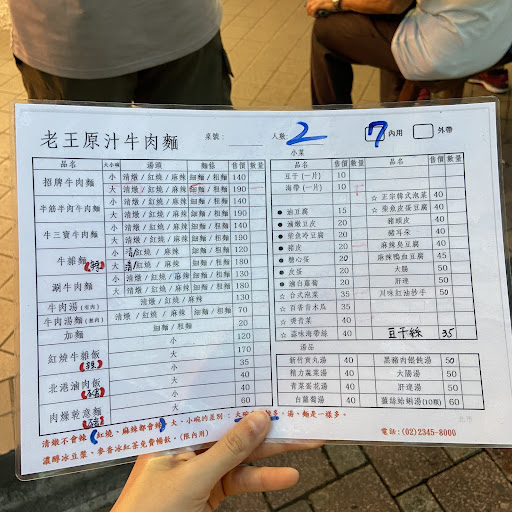 老王原汁牛肉麵 桌號： 人數： 2 7 內用 外帶
小菜
品名 大小碗 湯頭 麵條 售價 數量
招牌牛肉麵 小 清燉／紅燒／麻辣 細麵／粗麵 140
大 清燉／紅燒／麻辣 細麵／粗麵 190
半筋半肉牛肉麵 小 清燉／紅燒／麻辣 細麵／粗麵 140
大 清燉／紅燒／麻辣 細麵／粗麵 190
牛三寶牛肉麵 小 清燉／紅燒／麻辣 細麵／粗麵 140
大 清燉／紅燒／麻辣 細麵／粗麵 190
牛雜麵 小 紅燒／麻辣 細麵／粗麵 120
大 紅燒／麻辣 細麵／粗麵
涮牛肉麵 小 清燉／紅燒／麻辣 細麵／粗麵 130
大 清燉／紅燒／麻辣 細麵／粗麵 180
牛肉湯 清燉／紅燒／麻辣 130
牛肉湯麵 清燉／紅燒／麻辣 細麵／粗麵 70
加麵 細麵／粗麵 20
紅燒牛雜飯 小 120
大 170
北港滷肉飯 小 35
大 40
肉燥乾意麵 小 40
大 60
品名 售價 數量 品名 售價 數量
豆干(一片) 10
海帶(一片) 10 ☆ 正宗韓式泡菜 40
☆ 柴魚皮蛋豆腐 40
● 油豆腐 15 豬頭皮 40
● 滷燉豆皮 20 豬耳朵 40
● 柴魚冷豆腐 20 麻辣臭豆腐 40
● 豬皮 20 麻辣鴨血豆腐 45
● 糖心蛋 20 大腸 50
● 皮蛋 20 肝連 50
● 滷白蘿蔔 20 川味紅油抄手 50
☆ 台式泡菜 35
☆ 百香青木瓜 35
☆ 燙青菜 40
☆ 蒜味海帶絲 40 豆干絲 35
湯品
新竹貢丸湯 40 黑豬肉餛飩湯 50
精力蔬菜湯 40 大腸湯 50
青菜蛋花湯 40 肝連湯 50
白蘿蔔湯 40 薑絲蛤蜊湯(10顆) 60
清燉不會辣(紅燒、麻辣都會辣) 大、小碗的差別：大碗 湯、麵是一樣多。
濃醇冰豆漿、麥香冰紅茶免費暢飲。(限內用) 電話：(02)2345-8000